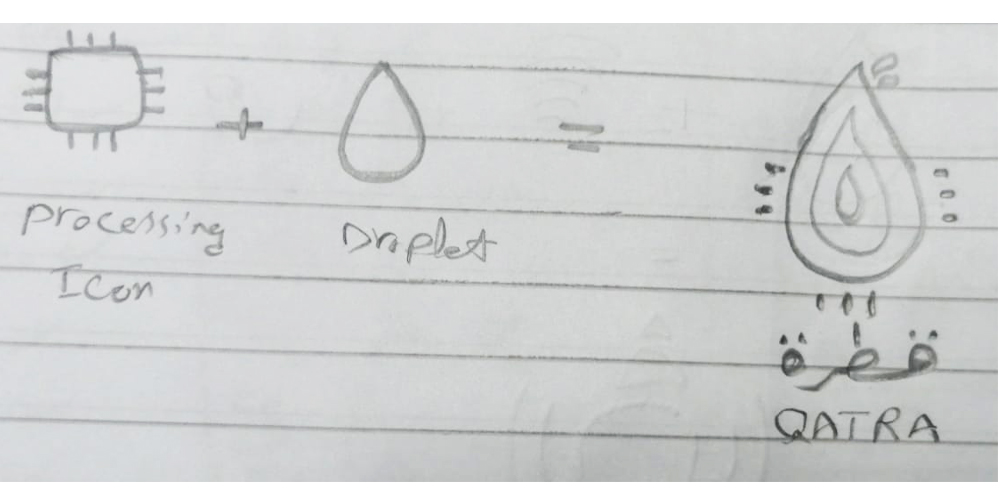 + =
Processing
Icon
Droplet
قطرة
QATRA